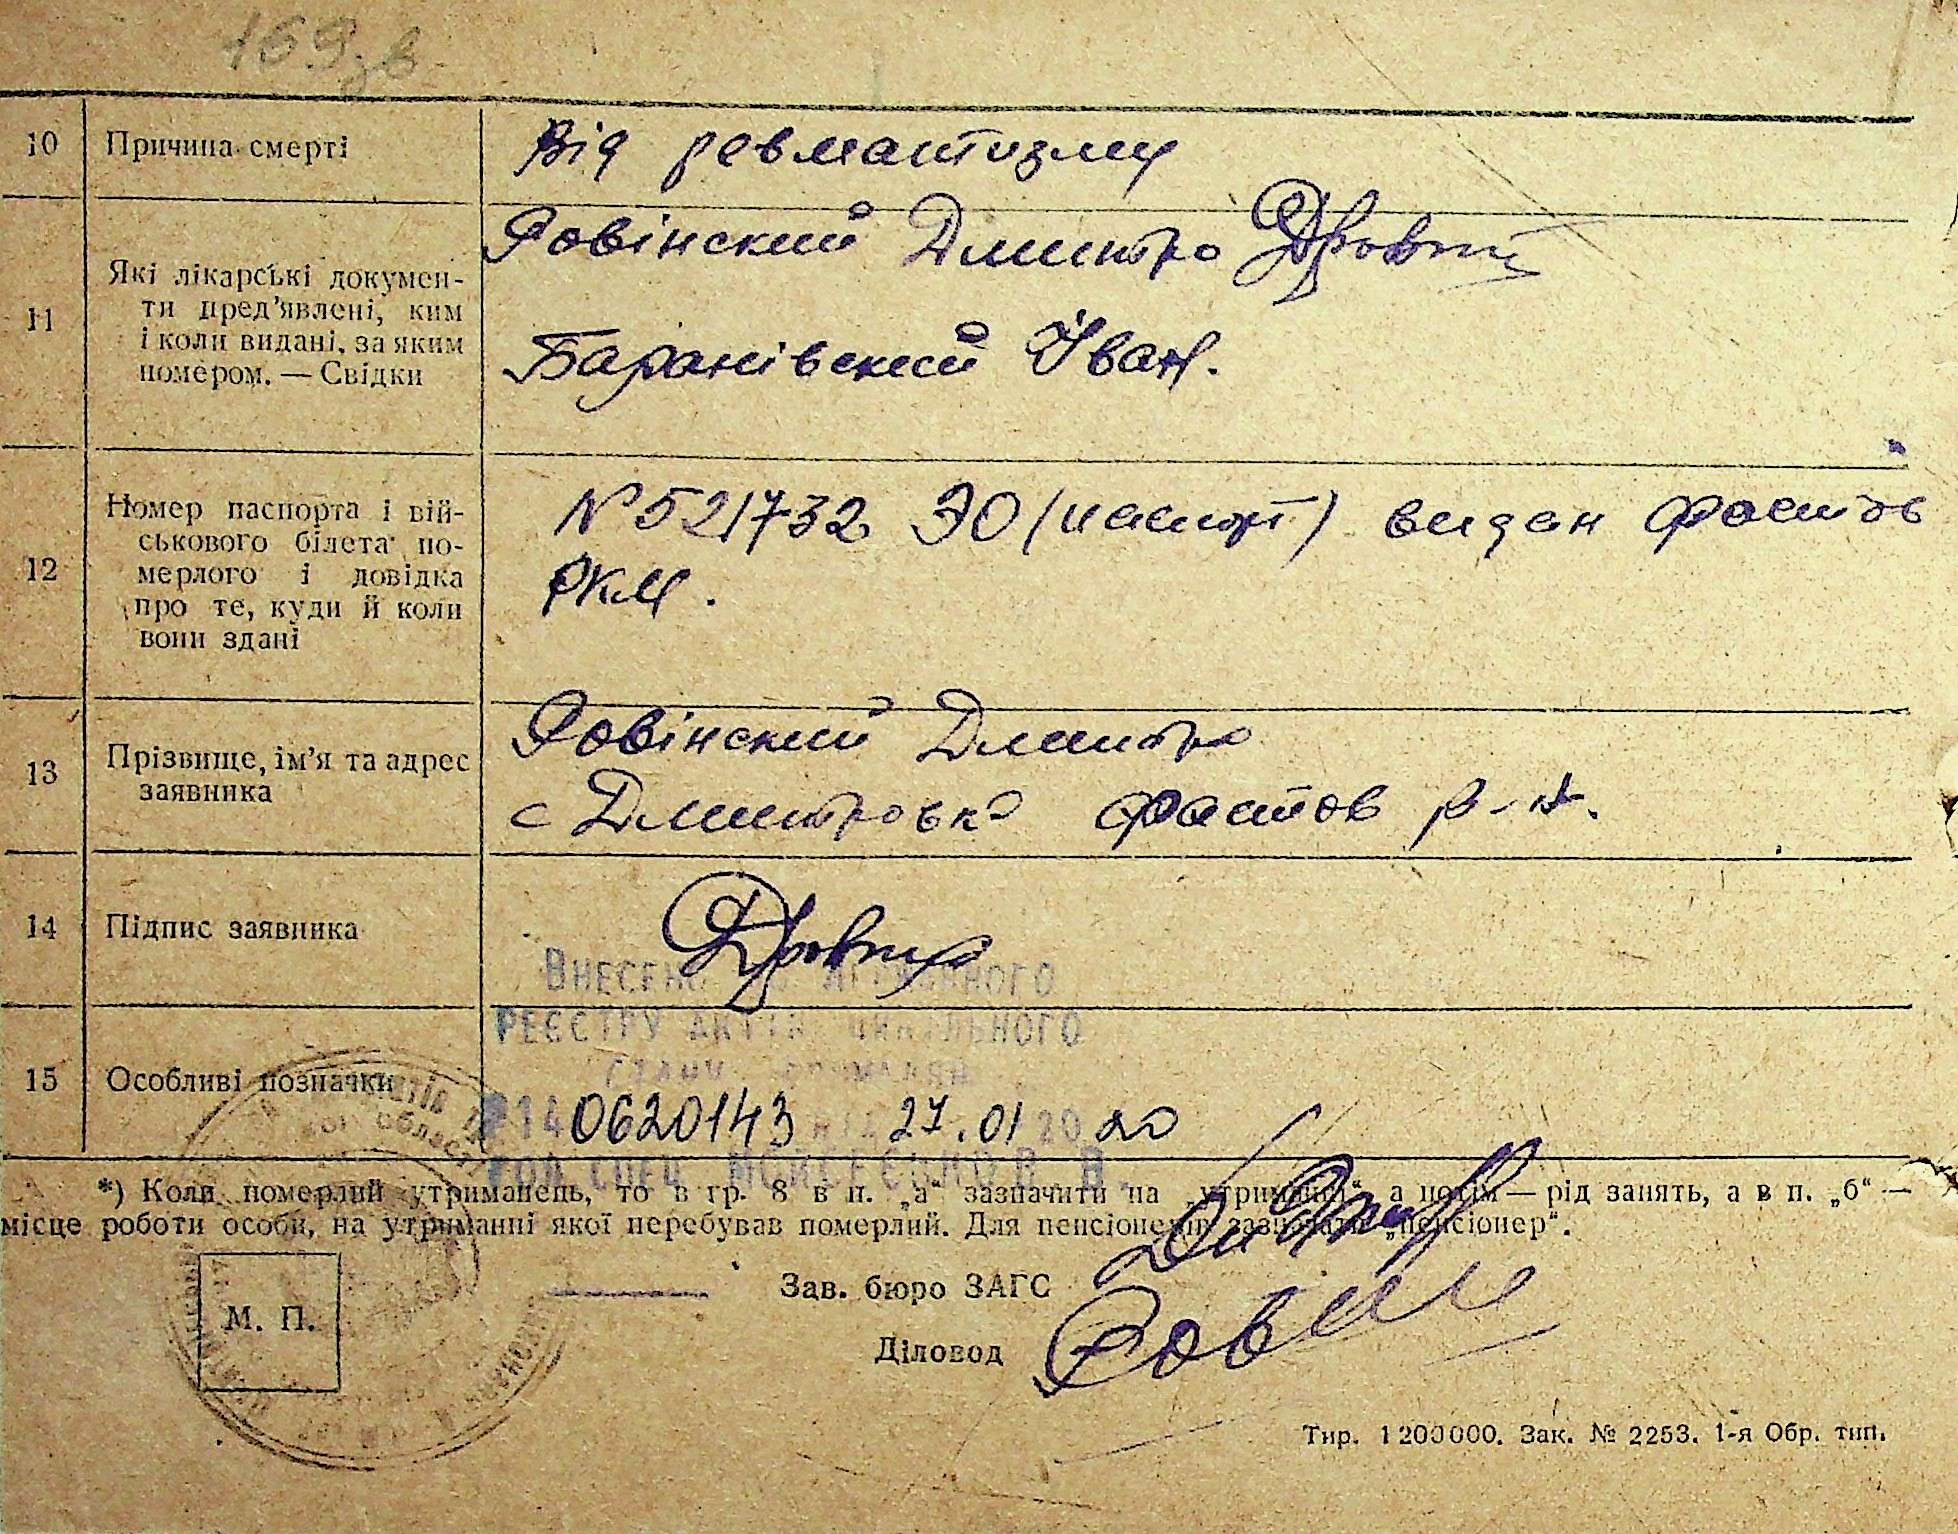 169 зв
10 Причина смерті Від ревматизму
11 Які лікарські докумен-
ти пред'явлені, ким
і коли видані, за яким
номером. — Свідки
Ровінский Дмитро
Баранівский Іван.
12 Номер паспорта і вій-
ськового білета по-
мерлого і довідка
про те, куди й коли
вони здані
N 521732 ЭО (паспорт) видан Фастов
РКМ.
13 Прізвище, ім'я та адрес
заявника
Ровінский Дмитро
с Дмитровка Фастов р-н.
14 Підпис заявника
ВНЕСЕНО ДО ДЕРЖАВНОГО
РЕЄСТРУ АКТІВ ЦИВІЛЬНОГО
СТАНУ ГРОМАДЯН
15 Особливі позначки
0620143 27.01 20 20
*) Коли померлий утриманець, то в гр. 8 в п. „а" зазначити на „утриманні", а потім — рід занять, а в п. „б" —
місце роботи особи, на утриманні якої перебував померлий. Для пенсіонерів зазначати „пенсіонер".
Зав. бюро ЗАГС
М. П.
Діловод
Тир. 1 200 000. Зак. № 2253. 1-я Обр. тип.